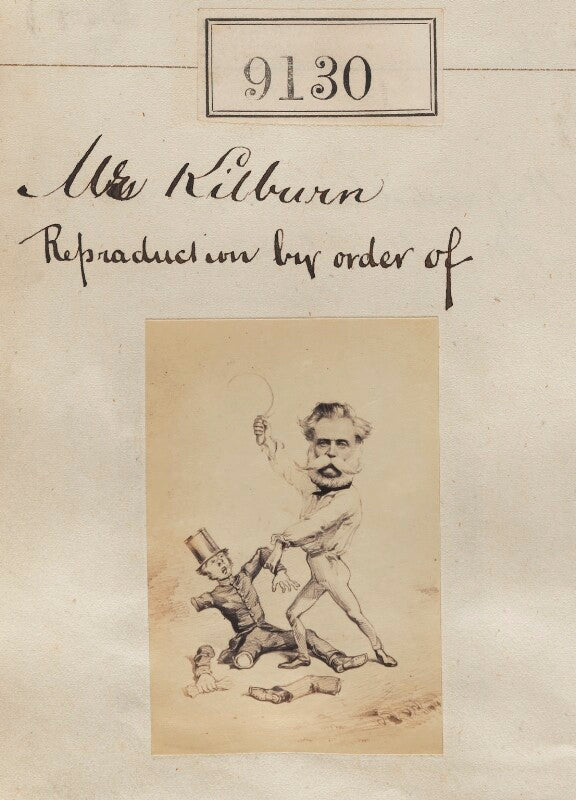 9130
Mr Kilburn
Reproduction by order of